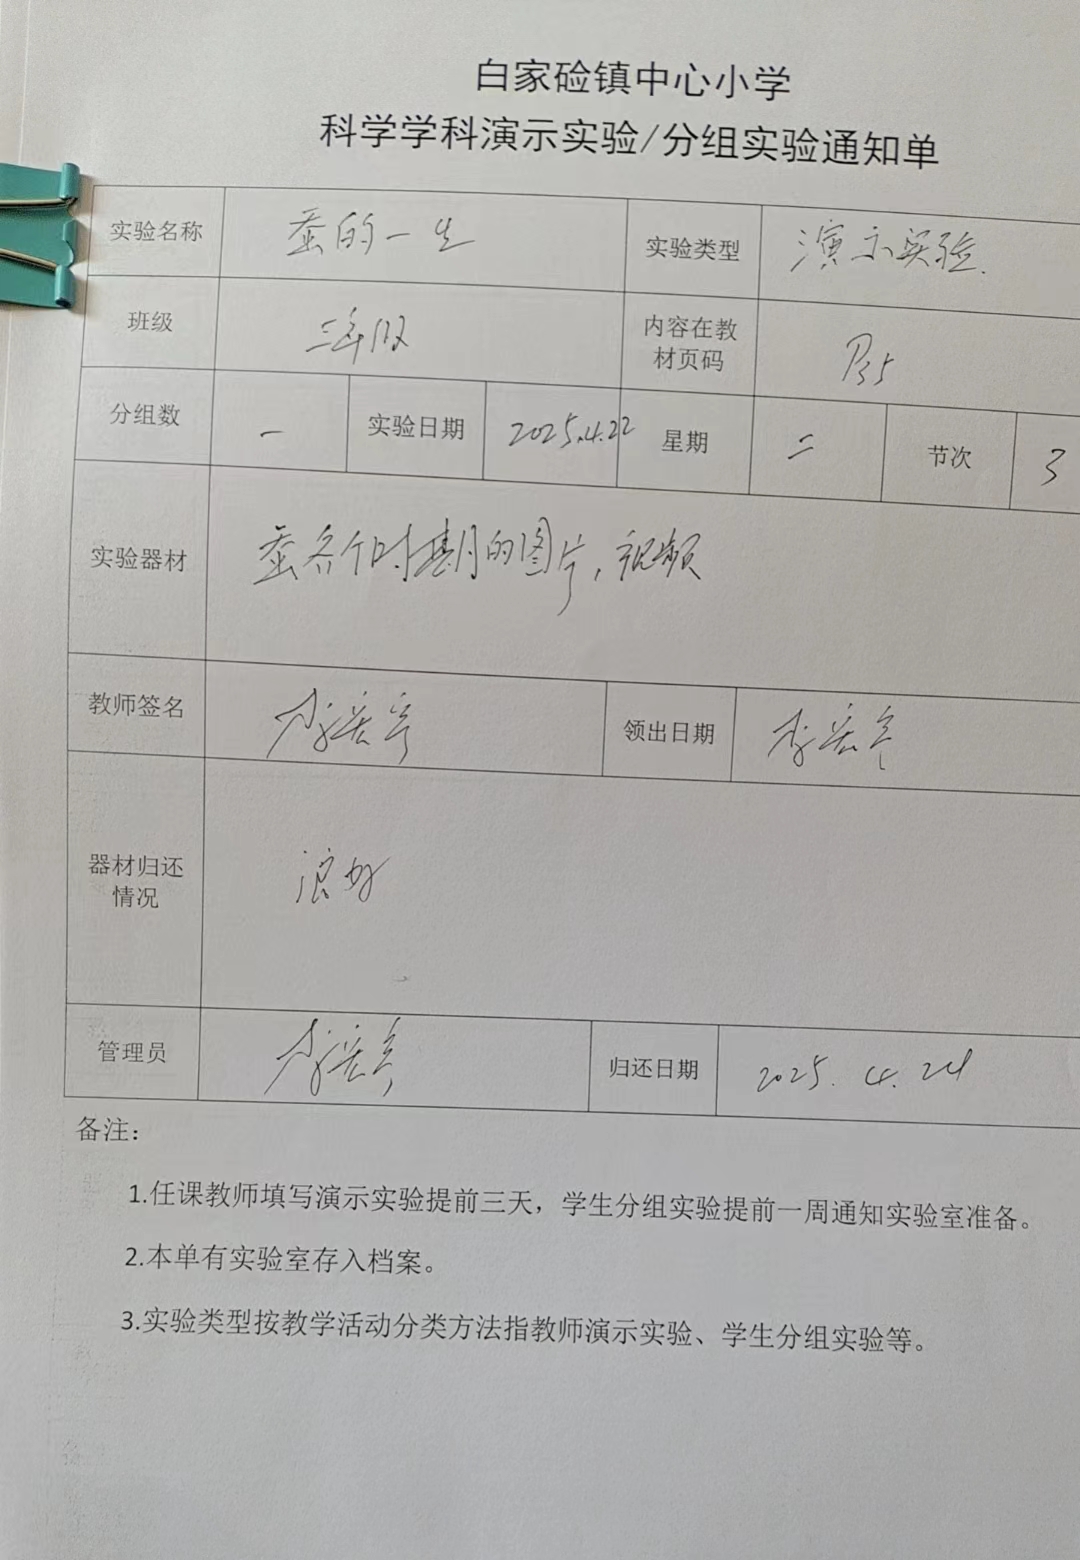 白家硷镇中心小学
科学学科演示实验/分组实验通知单
实验名称 蚕的一生 实验类型 演示实验.
班级 三年级 内容在教材页码 P35
分组数 一 实验日期 2025.4.22 星期 二 节次 3
实验器材 蚕各个时期的图片,视频
教师签名 李 领出日期 李
器材归还情况
管理员 李 归还日期 2025.4.24
备注：
1.任课教师填写演示实验提前三天，学生分组实验提前一周通知实验室准备。
2.本单有实验室存入档案。
3.实验类型按教学活动分类方法指教师演示实验、学生分组实验等。